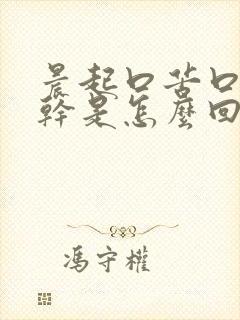 晨起口苦口
幹是怎麼回
馮守權